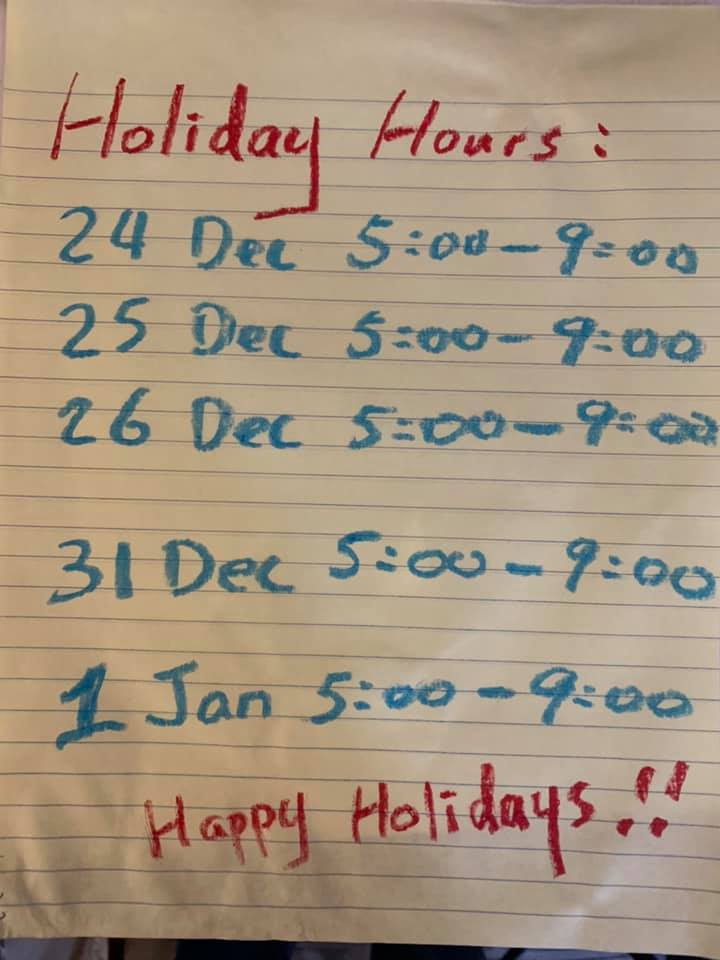 Holiday Hours:
24 Dec 5:00-9:00
25 Dec 5:00-9:00
26 Dec 5:00-9:00
31 Dec 5:00-9:00
1 Jan 5:00-9:00
Happy Holidays!!